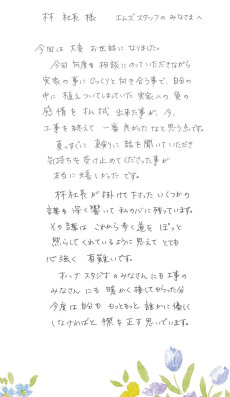 林 社長 様　エムズスタッフのみなさまへ
今回は大変お世話になりました。
今回何度も相談にのっていただきながら
実家の事にじっくりと向き合う事で、自分の
中に植えついてしまっていた実家への負の
感情を払拭出来た事が、今、
工事を終えて一番良かったなと思う点です。
真っすぐに真剣に話を聞いていただき
気持ちを受け止めてくださった事が
本当に嬉しかったです。
林社長が掛けて下さったいくつかの
言葉が深く響いて私の心に残っています。
その言葉はこれから歩く道をぽっと
照らしてくれているように思えてとても
心強く 有難いです。
オハナスタジオのみなさんにも工事の
みなさんにも暖かく接してもらった分
今度は自分ももっともっと誰かに優しく
しなければと襟を正す思いでいます。